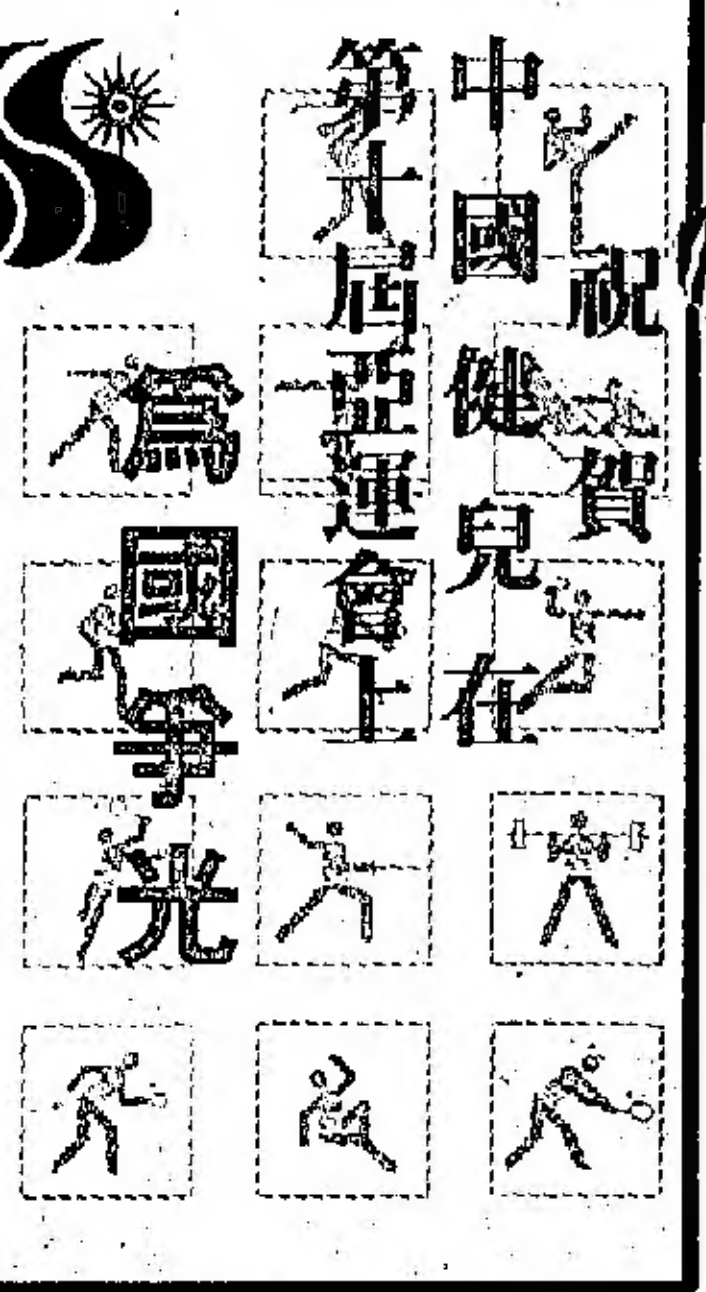 祝賀
中國健兒在
第十屆亞運會上
爲國爭光